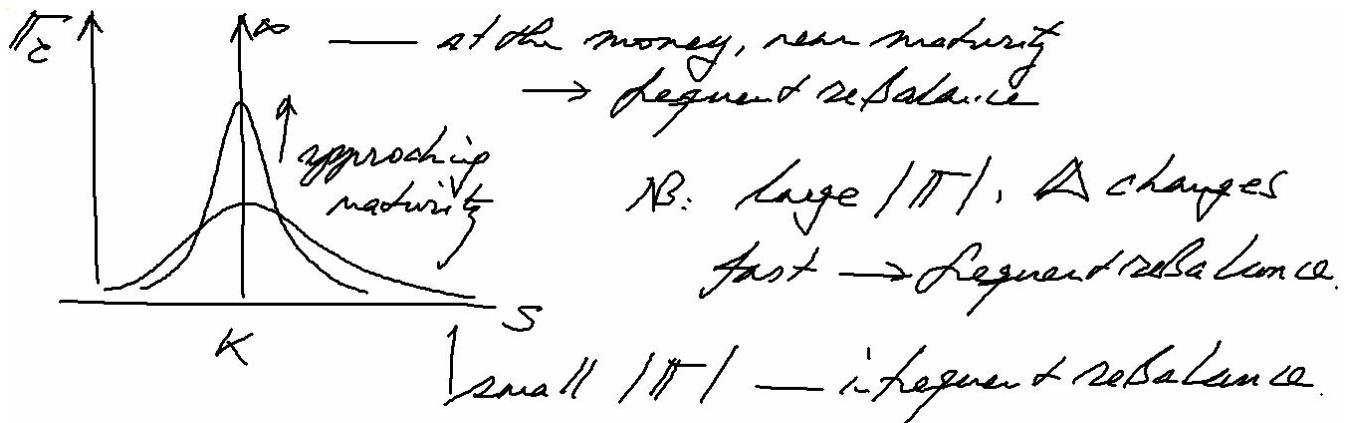 Γc ∞ — at the money, near maturity
→ frequent rebalance
approaching
maturity
NB: large |Γ|, Δ changes
fast → frequent rebalance.
S
K
small |Γ| — infrequent rebalance.